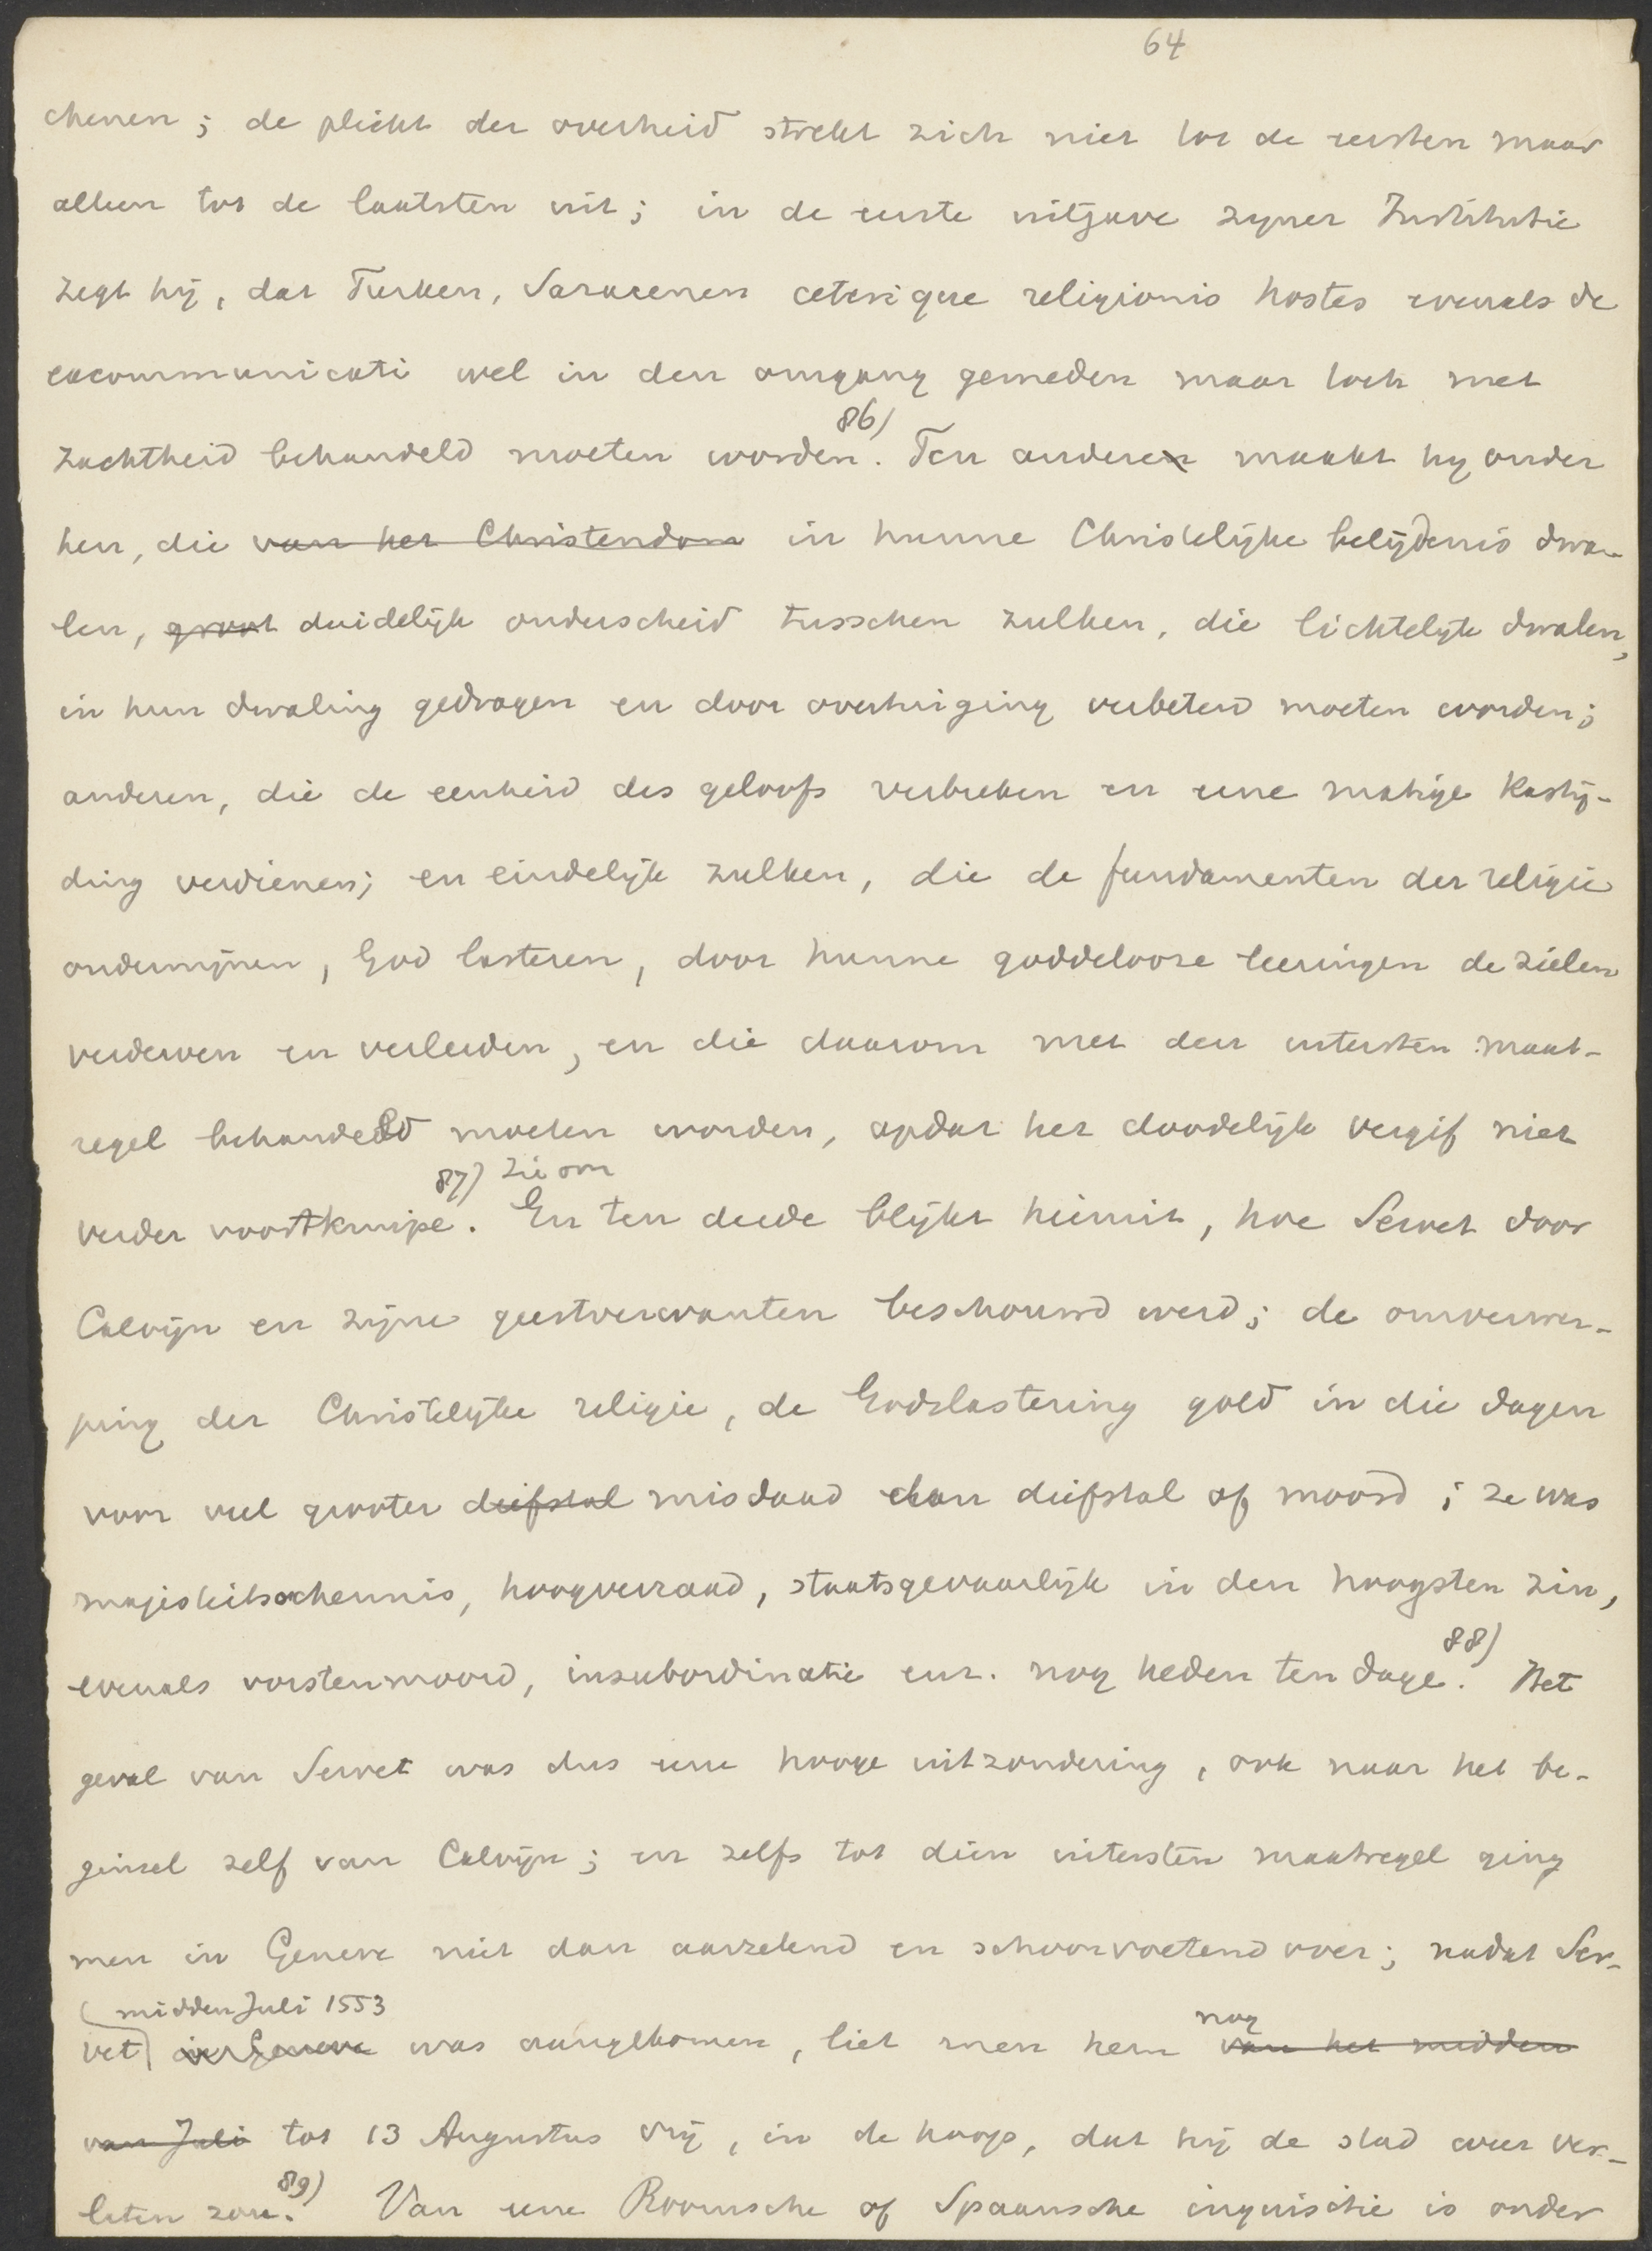 64
chenen; de plicht der overheid strekt zich niet tot de eersten maar
alleen tot de laatsten uit; in de eerste uitgave zyner Institutie
zegt hij, dat Turken, Saracenen ceterique religionis hostes evenals de
excommunicati wel in den omgang gemeden maar toch met
zachtheid behandeld moeten worden. 86) Ten andere maakt hy onder
hen, die van het Christendom in hunne Christelijke belijdenis dwa-
len, groot duidelijk onderscheid tusschen zulken, die lichtelyk dwalen,
in hun dwaling gedragen en door overtuiging verbeterd moeten worden;
anderen, die de eenheid des geloofs verbreken en eene matige kastij-
ding verdienen; en eindelijk zulken, die de fundamenten der religie
ondermijnen, God lasteren, door hunne goddelooze leeringen de zielen
verderven en verleiden, en die daarom met den uitersten maat-
regel behandeld moeten worden, opdat het doodelijk vergif niet
87) zie om
verder voortkruipe. En ten derde blijkt hieruit, hoe Servet door
Calvijn en zijne geestverwanten beschouwd werd; de omverwer-
ping der Christelijke religie, de Godslastering gold in die dagen
voor veel grooter diefstal misdaad dan diefstal of moord; ze was
majesteitsschennis, hoogverraad, staatsgevaarlijk in den hoogsten zin,
evenals vorstenmoord, insubordinatie enz. nog heden ten dage. 88) Het
geval van Servet was dus eene hooge uitzondering, ook naar het be-
ginsel zelf van Calvijn; en zelfs tot dien uitersten maatregel ging
men in Geneve niet dan aarzelend en schoorvoetend over; nadat Ser-
midden Juli 1553
vet in Geneve was aangekomen, liet men hem nog van het midden
van Juli tot 13 Augustus vrij, in de hoop, dat hij de stad weer ver-
laten zou. 89) Van eene Roomsche of Spaansche inquisitie is onder